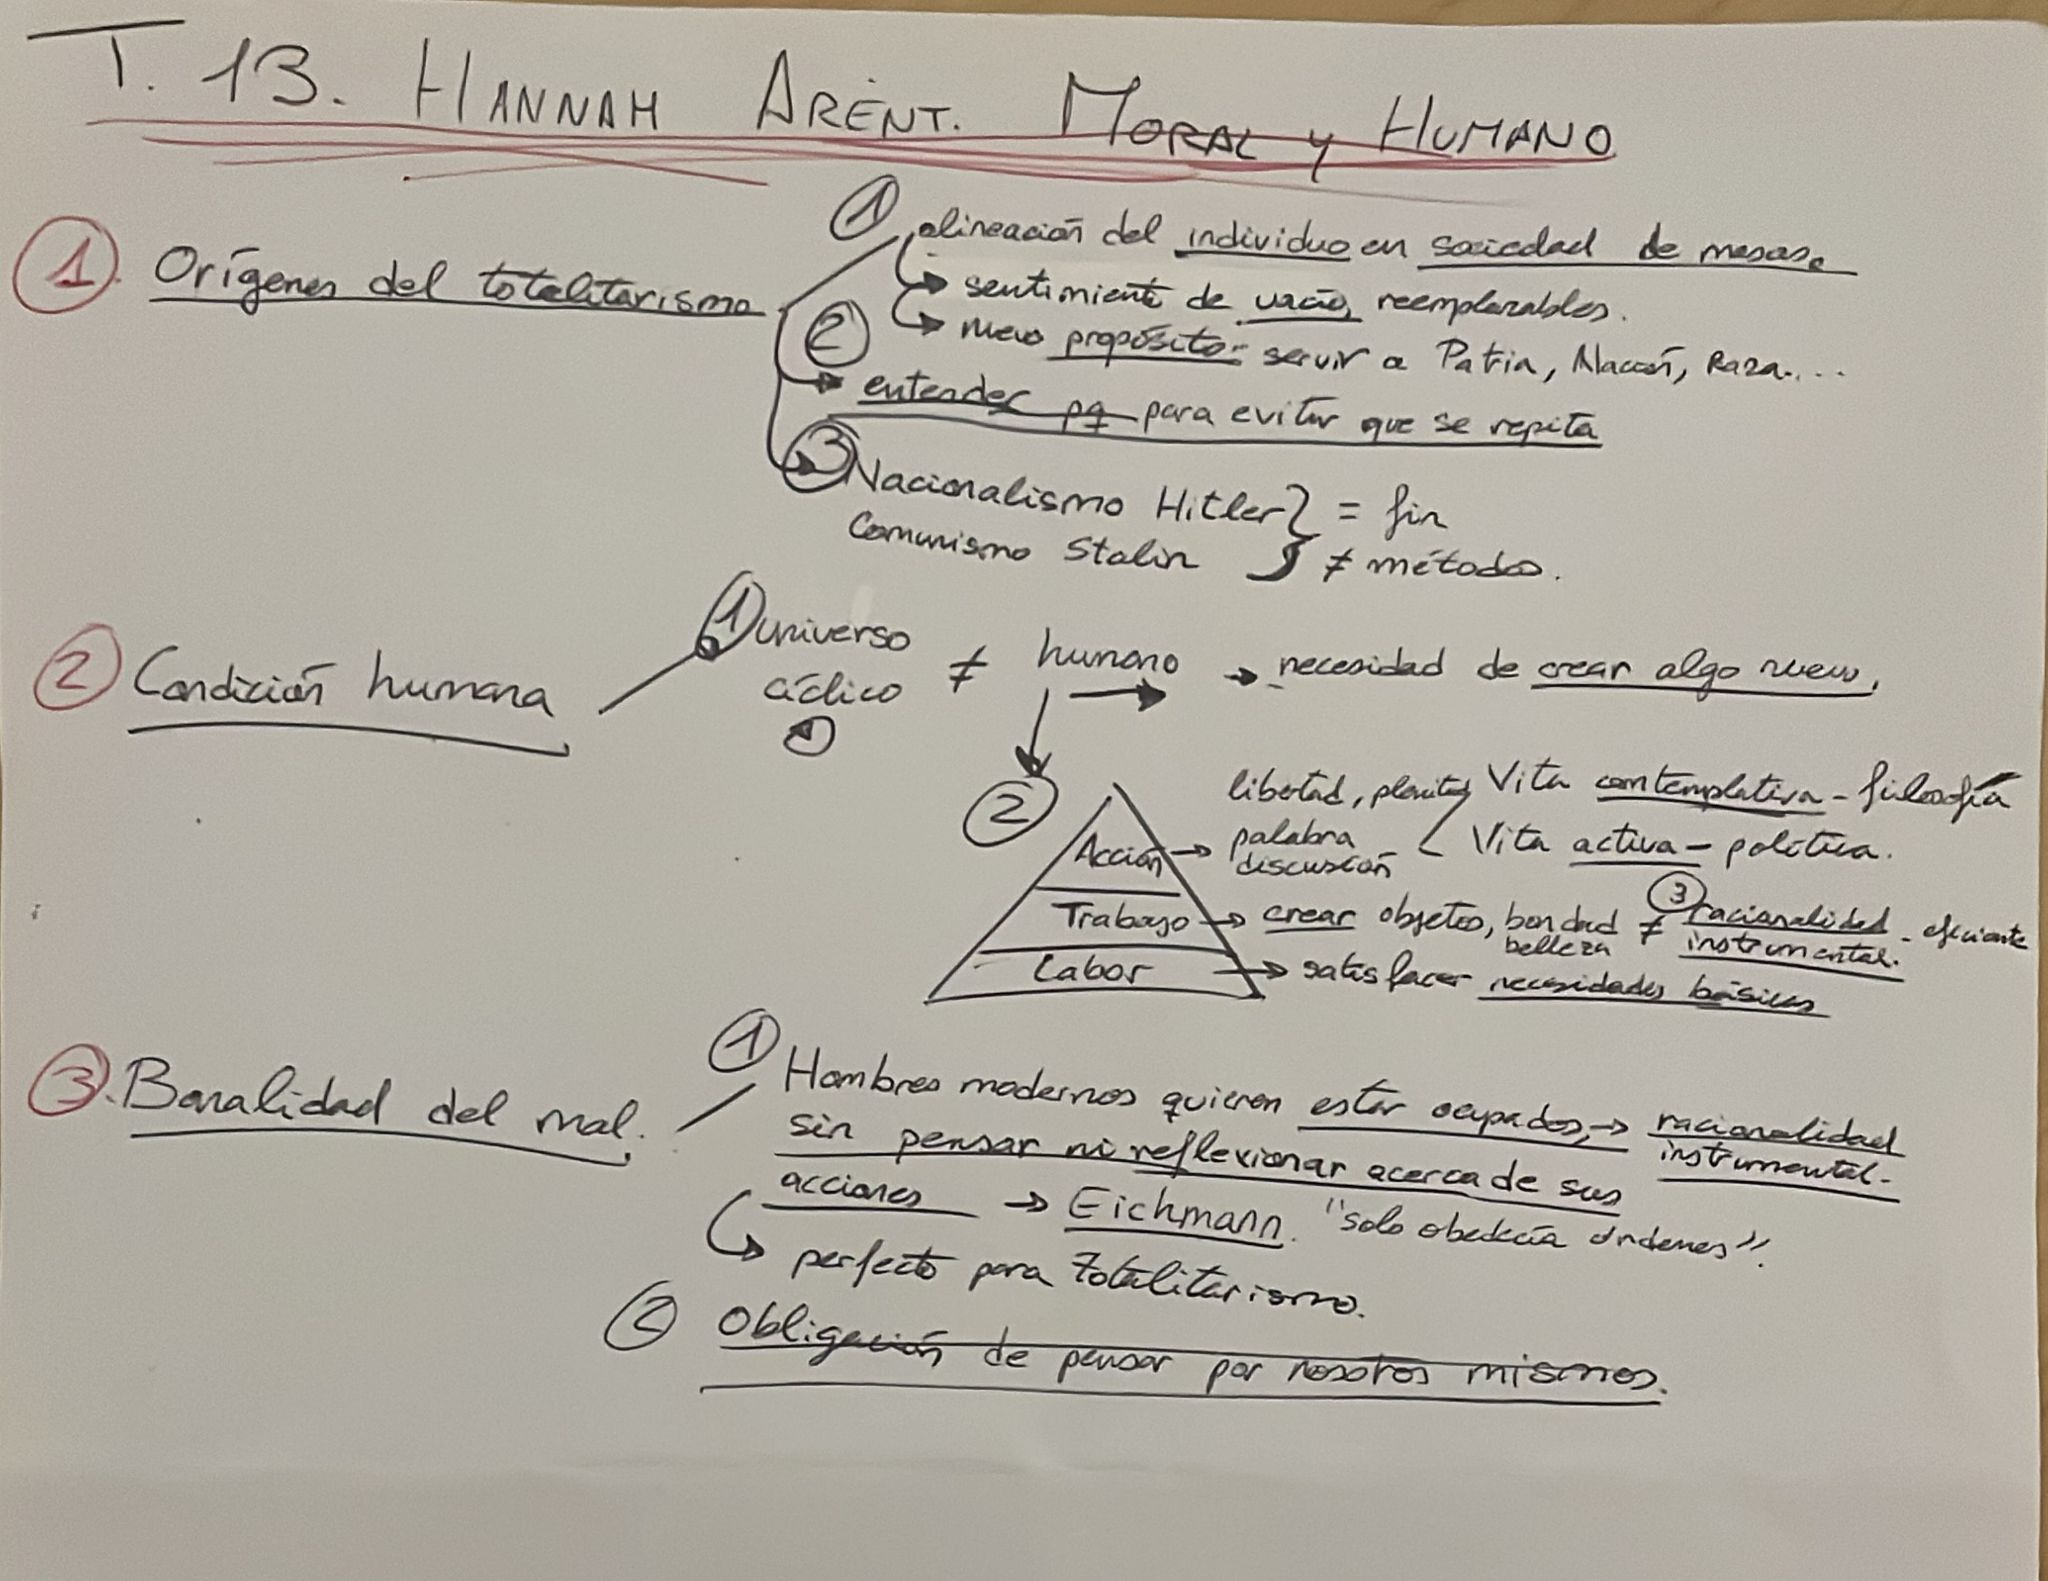 T. 13. HANNAH ARENT. MORAL Y HUMANO
1. Orígenes del totalitarismo
1 alineación del individuo en sociedad de masas.
→ sentimiento de vacío, reemplazables.
→ nuevo propósito: servir a Patria, Nación, Raza....
2 → entender pq para evitar que se repita
3 Nacionalismo Hitler } = fin
Comunismo Stalin } ≠ métodos.
2 Condición humana
1 universo cíclico ≠ humano → necesidad de crear algo nuevo.
2
Acción → libertad, palabra discusión < Vita contemplativa - filosofía
Vita activa - política.
Trabajo → crear objetos, bondad belleza ≠ 3 racionalidad instrumental. - eficiente
Labor → satisfacer necesidades básicas
3. Banalidad del mal.
1 Hombres modernos quieren estar ocupados, → racionalidad instrumental.
sin pensar ni reflexionar acerca de sus
acciones → Eichmann. "solo obedecía órdenes".
→ perfecto para totalitarismo.
2 Obligación de pensar por nosotros mismos.